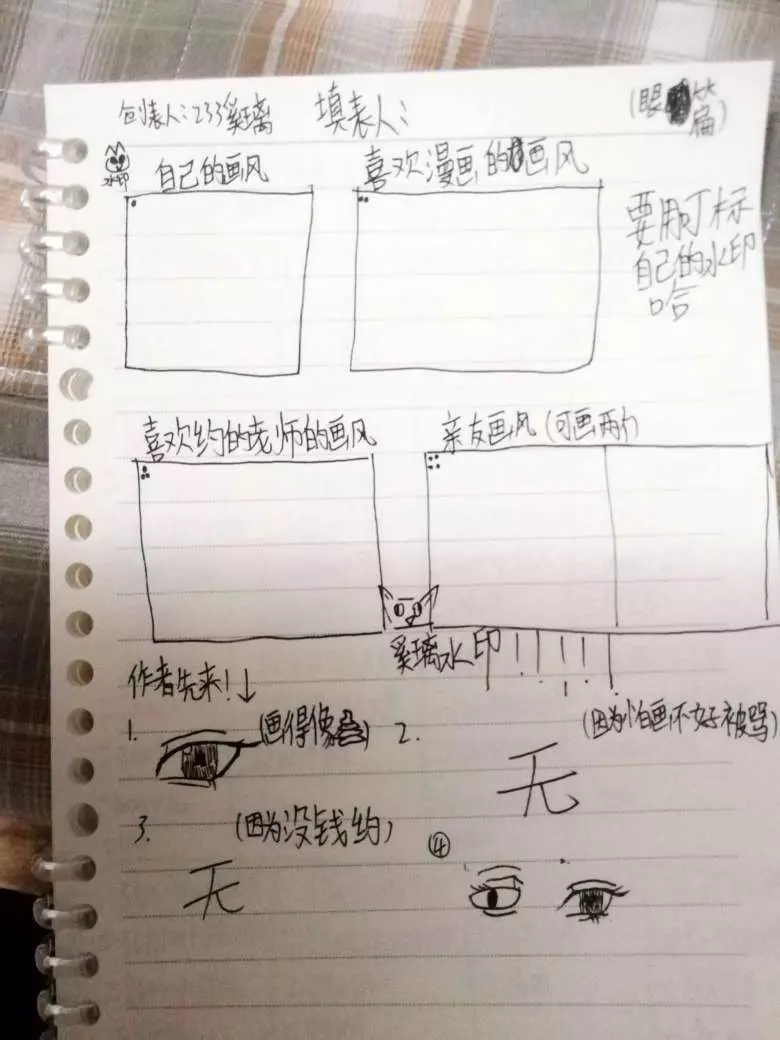 创表人:233奚璃 填表人:
(眼篇)
水印
自己的画风
喜欢漫画的画风
要用丁标
自己的水印
哈
喜欢约的老师的画风
亲友画风(可画两个)
奚璃水印!!!!!
作者先来!↓
1. (画得像)
2. (因为怕画不好被骂)
无
3. (因为没钱约)
无
④